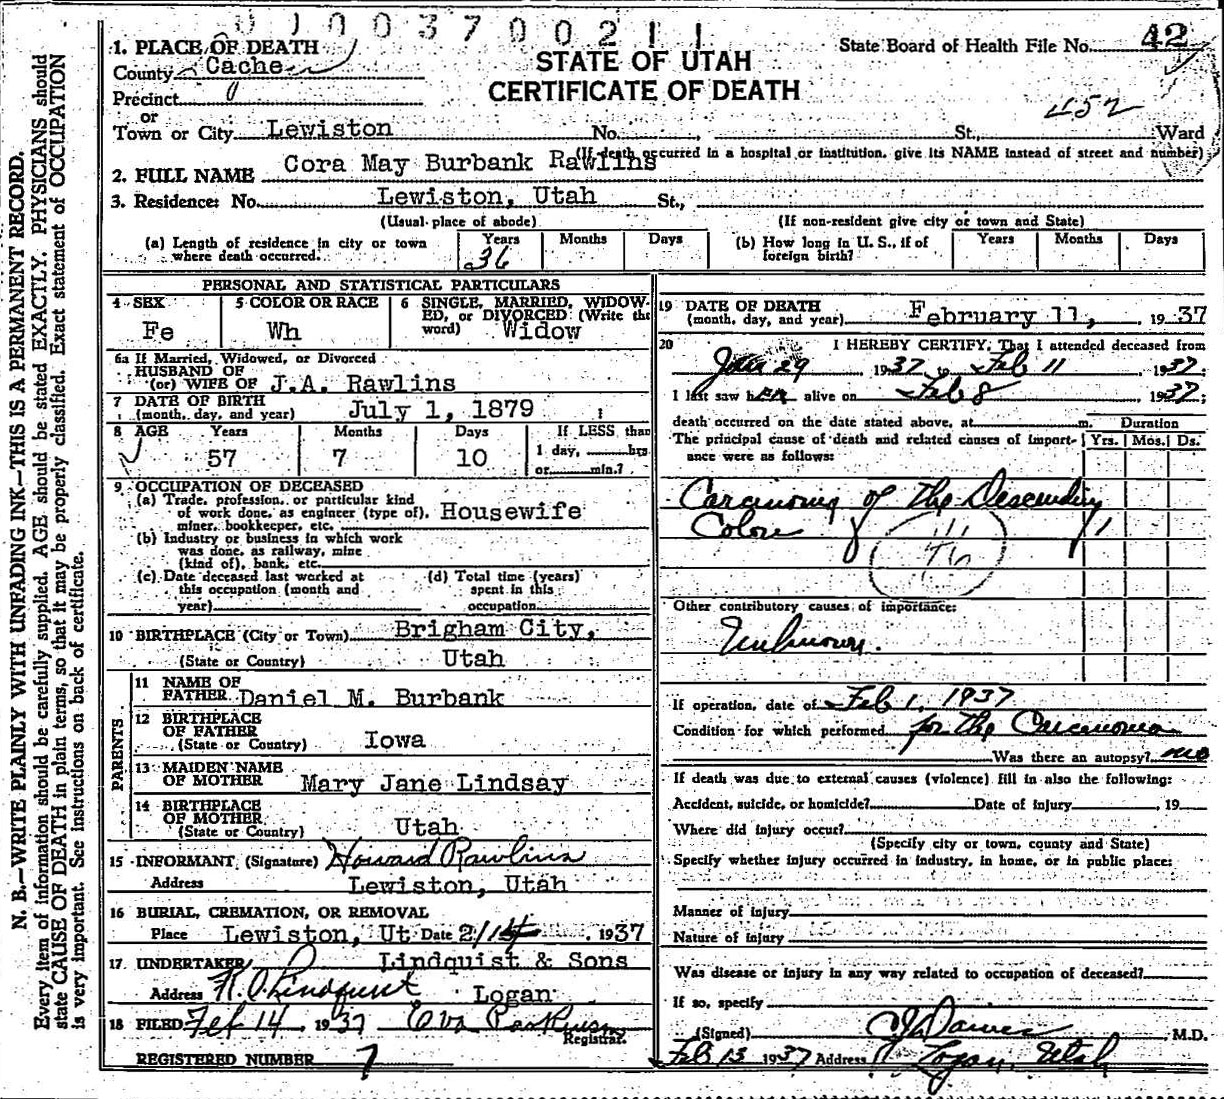 0 1 0 0 3 7 0 0 2 1 1
1. PLACE OF DEATH
County Cache
Precinct
or
Town or City Lewiston No. , St., Ward
STATE OF UTAH
CERTIFICATE OF DEATH
State Board of Health File No. 42
452
(If death occurred in a hospital or institution, give its NAME instead of street and number)
2. FULL NAME Cora May Burbank Rawlins
3. Residence: No. Lewiston, Utah St.,
(Usual place of abode) (If non-resident give city or town and State)
(a) Length of residence in city or town where death occurred. Years 36 Months Days
(b) How long in U. S., if of foreign birth? Years Months Days
PERSONAL AND STATISTICAL PARTICULARS
4 SEX Fe
5 COLOR OR RACE Wh
6 SINGLE, MARRIED, WIDOWED, or DIVORCED (Write the word) Widow
6a If Married, Widowed, or Divorced
HUSBAND OF
(or) WIFE OF J.A. Rawlins
7 DATE OF BIRTH
(month, day, and year) July 1, 1879
8 AGE Years 57 Months 7 Days 10 If LESS than 1 day, hrs or min.?
9 OCCUPATION OF DECEASED
(a) Trade, profession, or particular kind
of work done, as engineer (type of), Housewife
miner, bookkeeper, etc.
(b) Industry or business in which work
was done, as railway, mine
(kind of), bank, etc.
(c) Date deceased last worked at
this occupation (month and
year)
(d) Total time (years)
spent in this
occupation
10 BIRTHPLACE (City or Town) Brigham City,
(State or Country) Utah
PARENTS
11 NAME OF
FATHER Daniel M. Burbank
12 BIRTHPLACE
OF FATHER
(State or Country) Iowa
13 MAIDEN NAME
OF MOTHER Mary Jane Lindsay
14 BIRTHPLACE
OF MOTHER
(State or Country) Utah
15 INFORMANT (Signature) Howard Rawlins
Address Lewiston, Utah
16 BURIAL, CREMATION, OR REMOVAL
Place Lewiston, Ut Date 2/14 1937
17 UNDERTAKER Lindquist & Sons
Address Lindquist Logan
18 FILED Feb 14, 1937 Eva Parkinson
Registrar.
REGISTERED NUMBER 7
19 DATE OF DEATH
(month, day, and year) February 11, 1937
20 I HEREBY CERTIFY, That I attended deceased from
Jan 29 1937 to Feb 11 1937;
I last saw her alive on Feb 8 1937;
death occurred on the date stated above, at m. Duration
The principal cause of death and related causes of importance were as follows: Yrs. Mos. Ds.
Carcinoma of the Descending
Colon
46
Other contributory causes of importance:
Unknown.
If operation, date of Feb 1, 1937
Condition for which performed for the Carcanoma
Was there an autopsy? no
If death was due to external causes (violence) fill in also the following:
Accident, suicide, or homicide? Date of injury , 19
Where did injury occur?
(Specify city or town, county and State)
Specify whether injury occurred in industry, in home, or in public place:
Manner of injury
Nature of injury
Was disease or injury in any way related to occupation of deceased?
If so, specify
(Signed) , M.D.
Feb 13 1937 Address Logan, Utah
N. B.—WRITE PLAINLY WITH UNFADING INK—THIS IS A PERMANENT RECORD.
Every item of information should be carefully supplied. AGE should be stated EXACTLY. PHYSICIANS should
state CAUSE OF DEATH in plain terms, so that it may be properly classified. Exact statement of OCCUPATION
is very important. See instructions on back of certificate.